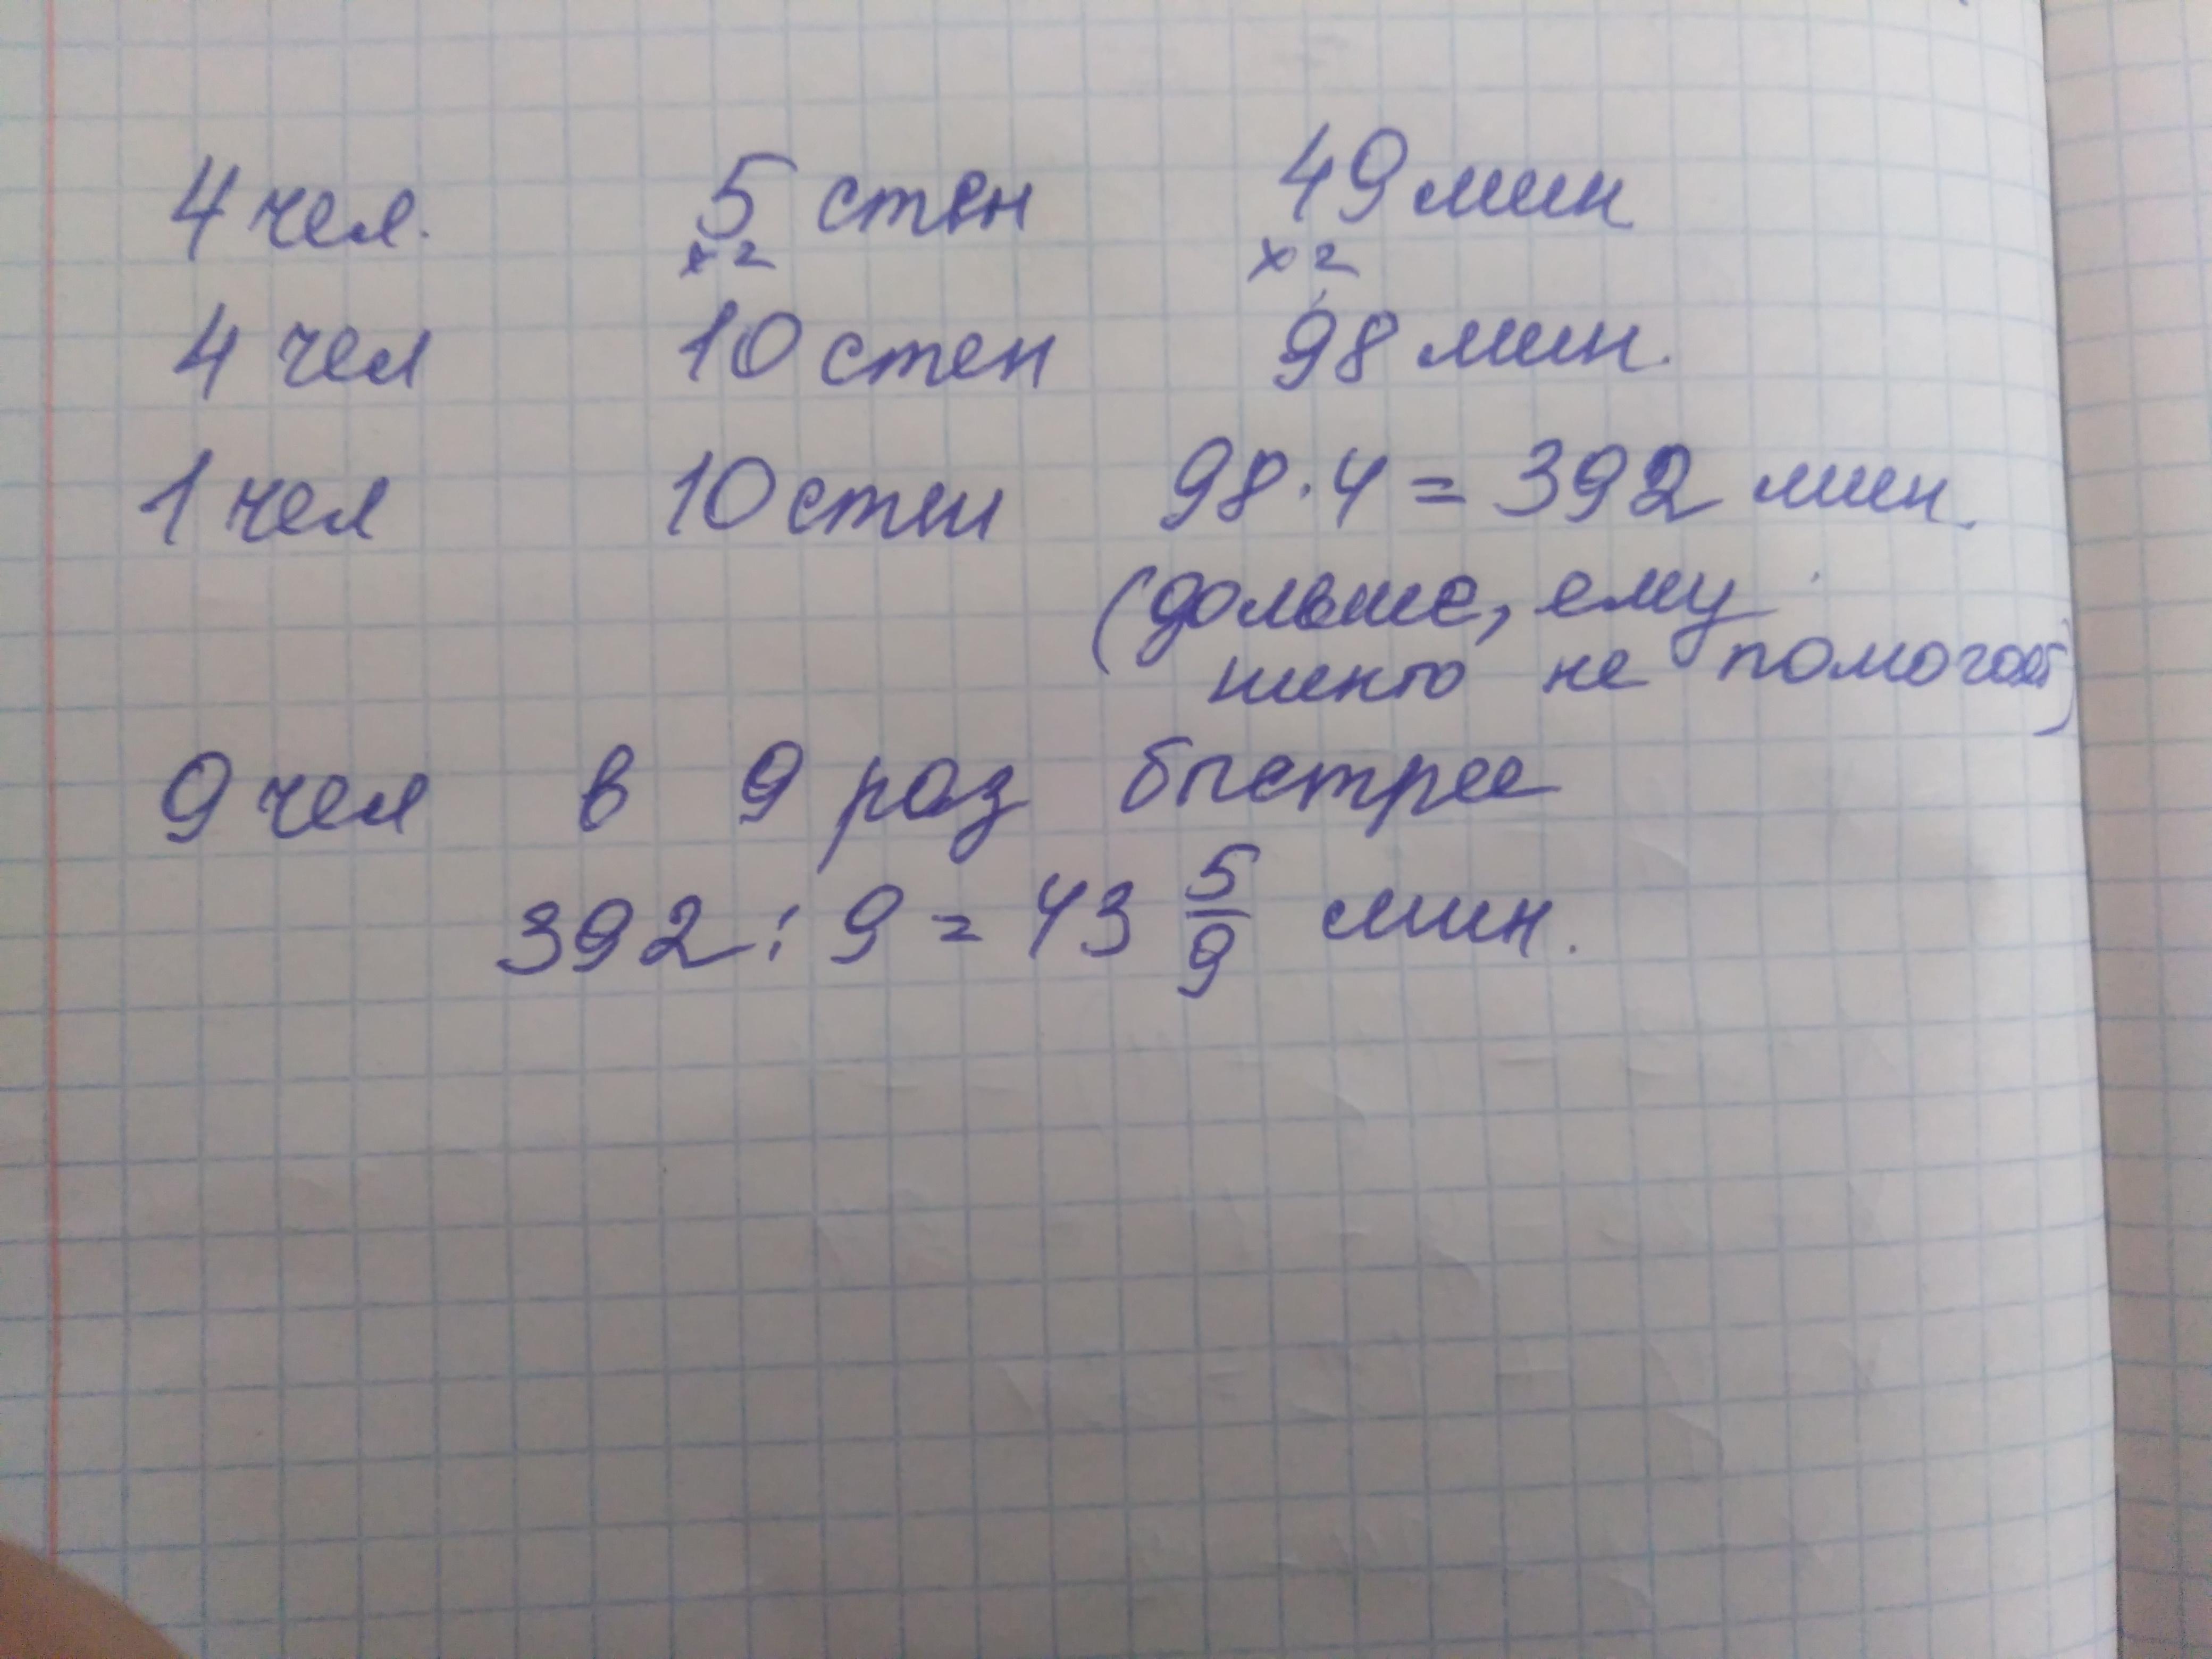 4 чел. 5 стен 49 мин
x2 x2
4 чел 10 стен 98 мин.
1 чел 10 стен 98 · 4 = 392 мин.
(дольше, ему
никто не помогает)
9 чел в 9 раз быстрее
392 : 9 = 43 5/9 мин.